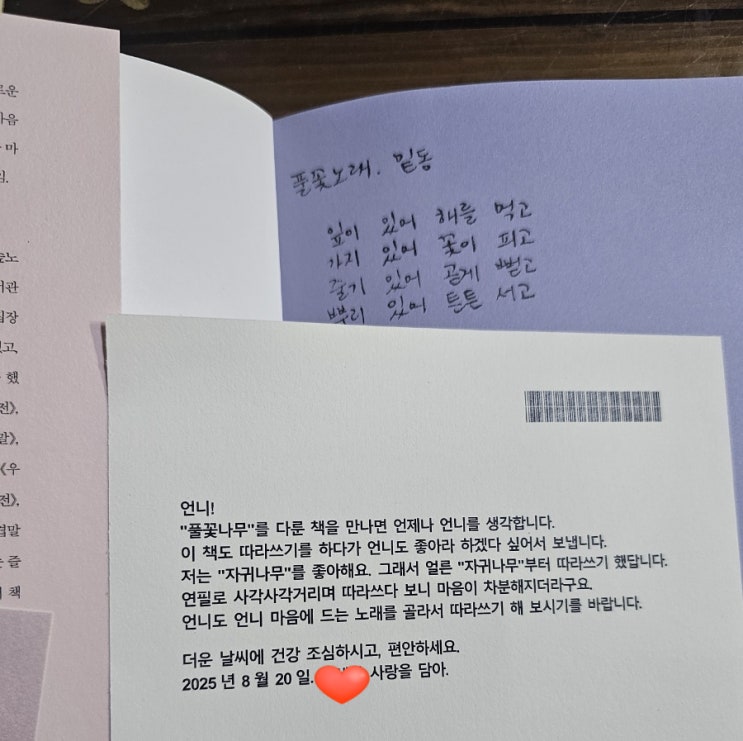 로운
마음
마
임.
노
서관
집장
있고,
했
전》,
말》,
《우
전》,
겹말
즐
책
풀꽃노래. 밑동
잎이 있어 해를 먹고
가지 있어 꽃이 피고
줄기 있어 곱게 뻗고
뿌리 있어 튼튼 서고
언니!
"풀꽃나무"를 다룬 책을 만나면 언제나 언니를 생각합니다.
이 책도 따라쓰기를 하다가 언니도 좋아라 하겠다 싶어서 보냅니다.
저는 "자귀나무"를 좋아해요. 그래서 얼른 "자귀나무"부터 따라쓰기 했답니다.
연필로 사각사각거리며 따라쓰다 보니 마음이 차분해지더라구요.
언니도 언니 마음에 드는 노래를 골라서 따라쓰기 해 보시기를 바랍니다.
더운 날씨에 건강 조심하시고, 편안하세요.
2025년 8월 20일. 사랑을 담아.